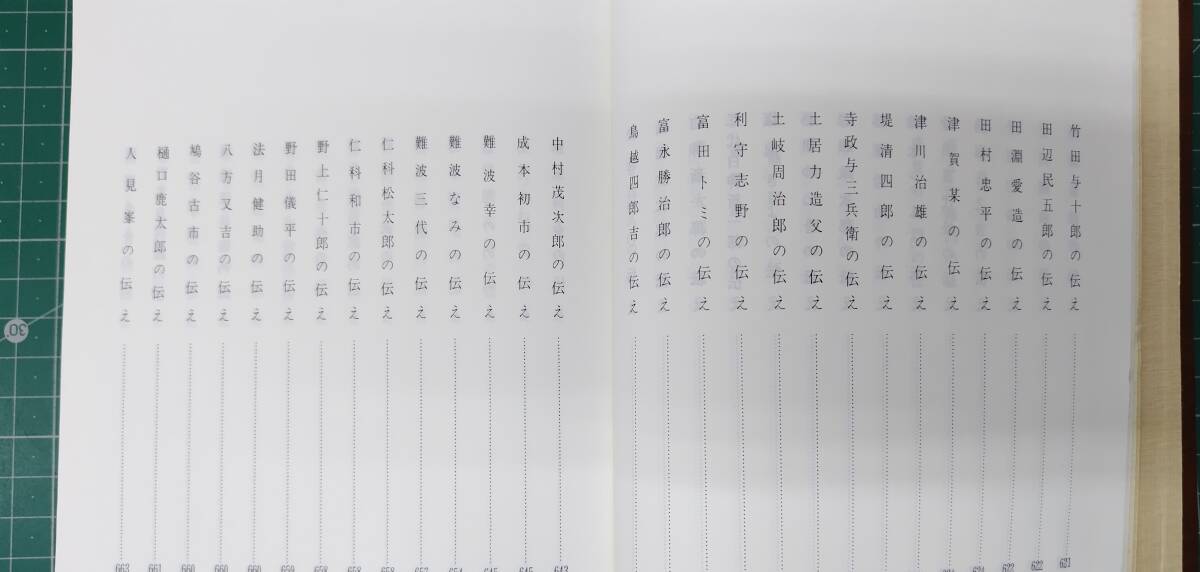 竹田与十郎の伝え……621
田辺民五郎の伝え……622
田淵愛造の伝え……622
田村忠平の伝え
津賀某の伝え
津川治雄の伝え
堤清四郎の伝え
寺政与三兵衛の伝え
土居力造父の伝え
土岐周治郎の伝え
利守志野の伝え
富田トミの伝え
富永勝治郎の伝え
鳥越四郎吉の伝え
中村茂次郎の伝え……643
成本初市の伝え……645
難波幸の伝え……645
難波なみの伝え……654
難波三代の伝え……657
仁科松太郎の伝え……658
仁科和市の伝え……658
野上仁十郎の伝え……658
野田儀平の伝え……659
法月健助の伝え……660
八方又吉の伝え……660
鳩谷古市の伝え……660
樋口鹿太郎の伝え……661
人見峯の伝え……663
30°